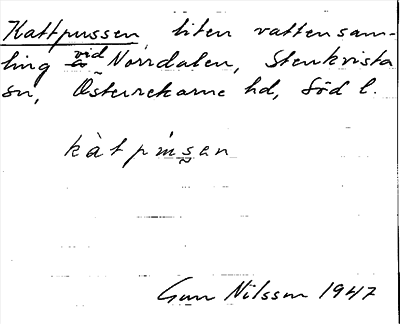 Kattpussen, liten vattensam-
ling vid Norrdalen, Stenkvista
sn, Österrekarne hd, Söd l.
kàtpússen
Gun Nilsson 1947